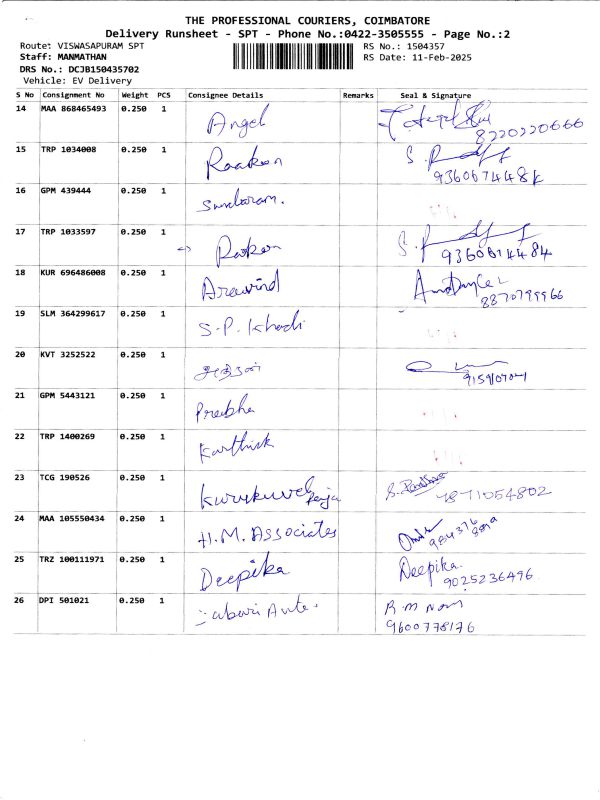 THE PROFESSIONAL COURIERS, COIMBATORE
Delivery Runsheet - SPT - Phone No.:0422-3505555 - Page No.:2
Route: VISWASAPURAM SPT RS No.: 1504357
Staff: MANMATHAN RS Date: 11-Feb-2025
DRS No.: DCJB150435702
Vehicle: EV Delivery
S No Consignment No Weight PCS Consignee Details Remarks Seal & Signature
14 MAA 868465493 0.250 1 Angel
8220220666
15 TRP 1034008 0.250 1 Raakon S.
16 GPM 439444 0.250 1 Sundaram.
17 TRP 1033597 0.250 1 Rakon S.
9360614484
18 KUR 696486008 0.250 1 Aravind
8870799966
19 SLM 364299617 0.250 1 S.P. Khadi
20 KVT 3252522 0.250 1
21 GPM 5443121 0.250 1 Prabha
22 TRP 1400269 0.250 1 Karthick
23 TCG 190526 0.250 1
4871054802
24 MAA 105550434 0.250 1 H.M. Associates
25 TRZ 100111971 0.250 1 Deepika Deepika.
9025236496
26 DPI 501021 0.250 1 R.M
9600778176